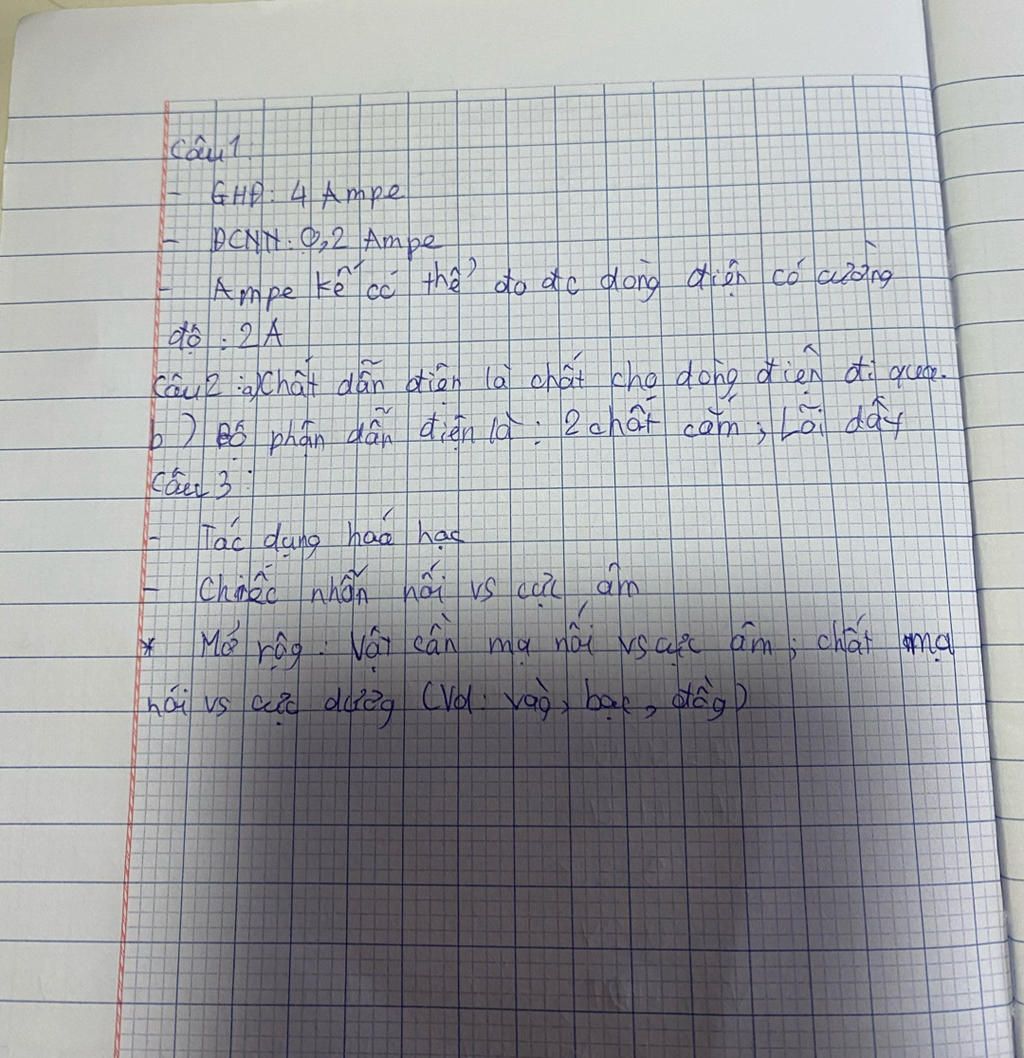 Câu 1:
- GHĐ: 4 Ampe
- ĐCNN: 0,2 Ampe
- Ampe kế có thể đo đc dòng điện có cường
độ : 2A
Câu 2 : a) Chất dẫn điện là chất cho dòng điện đi qua.
b) Bộ phận dẫn điện là : 2 chất cắm, Lõi dây
Câu 3 :
- Tác dụng hoá học
- Chiếc nhẫn nối vs cực âm
* Mở rộg : Vật cần mạ nối vs cực âm ; chất mạ
nối vs cực dươg (Vd : vàg, bạc, đồg)